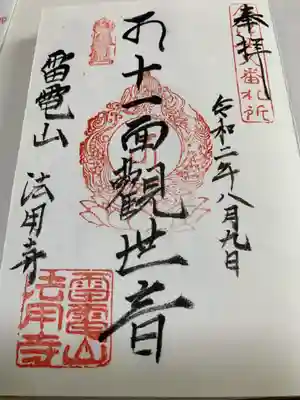 奉拝
番札所
令和二年八月九日
十一面觀世音
雷電山 法用寺
雷電山
法用寺